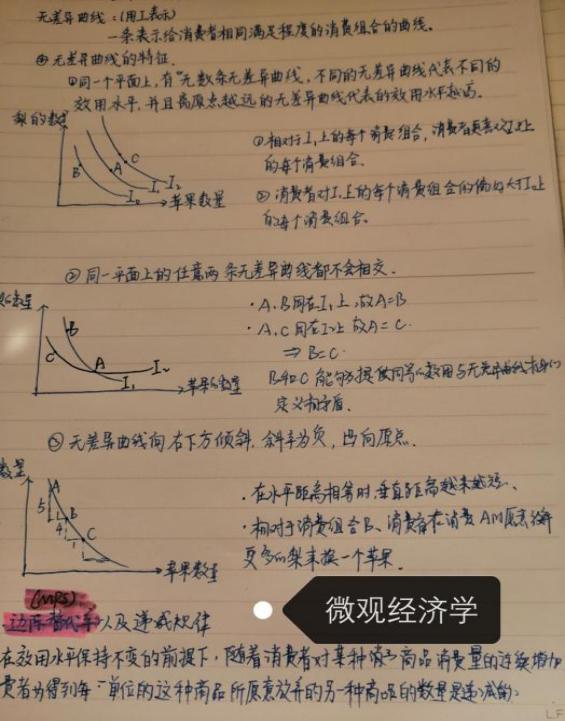 无差异曲线：(用I表示)
一条表示给消费者相同满足程度的消费组合的曲线。
④ 无差异曲线的特征.
①同一个平面上，有"无数条无差异曲线，不同的无差异曲线代表不同的
效用水平，并且离原点越远的无差异曲线代表的效用水平越高。
梨的数量
B A C
I₀ I₁ I₂
苹果数量
①相对于I₁上的每个消费组合，消费者更喜欢I₂上
的每个消费组合.
② 消费者对I₁上的每个消费组合的偏好大于I₀上
的每个消费组合。
② 同一平面上的任意两条无差异曲线都不会相交.
数量
B
C A
I₂
I₁
苹果的数量
· A、B同在I₁上，故A=B
· A、C同在I₂上 故A=C.
⇒ B=C.
B和C能够提供同等的效用与无差异曲线
定义相矛盾.
③ 无差异曲线向右下方倾斜. 斜率为负，凸向原点.
数量
A
5
B
4
C
1
苹果数量
· 在水平距离相等时，垂直距离越来越短、
· 相对于消费组合B、消费者在消费A时愿意
更多的梨来换一个苹果.
(MRS)
边际替代率以及递减规律
微观经济学
在效用水平保持不变的前提下，随着消费者对某种商品消费量的连续增加
费者为得到每一单位的这种商品所愿意放弃的另一种商品的数量是递减的。
LF